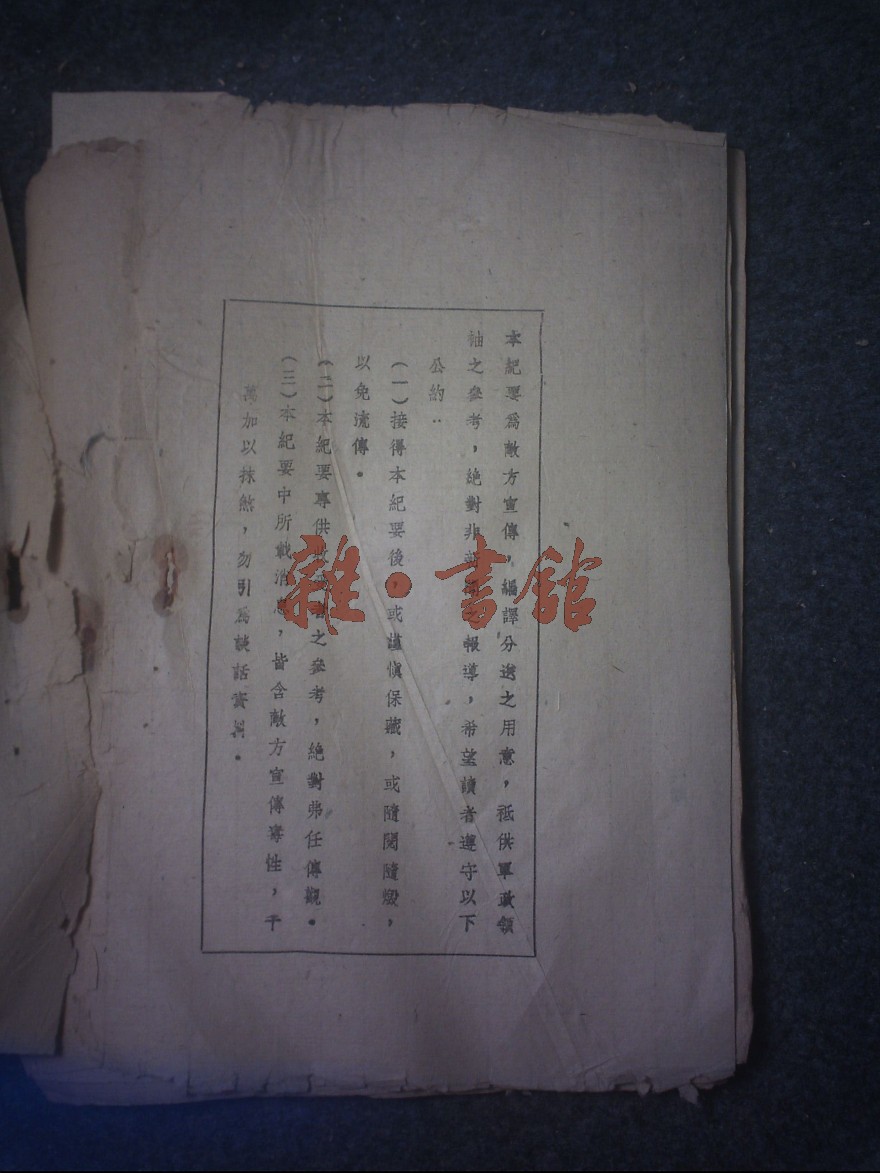 本紀要爲敵方宣傳，編譯分送之用意，祗供軍政領
袖之參考，絕對非新聞之報導，希望讀者遵守以下
公約：
（一）接得本紀要後，或謹愼保藏，或隨閱隨燬，
以免流傳。
（二）本紀要專供收之參考，絕對弗任傳觀。
（三）本紀要中所載消息，皆含敵方宣傳毒性，千
萬加以抹煞，勿引爲談話資料。
雜·書館